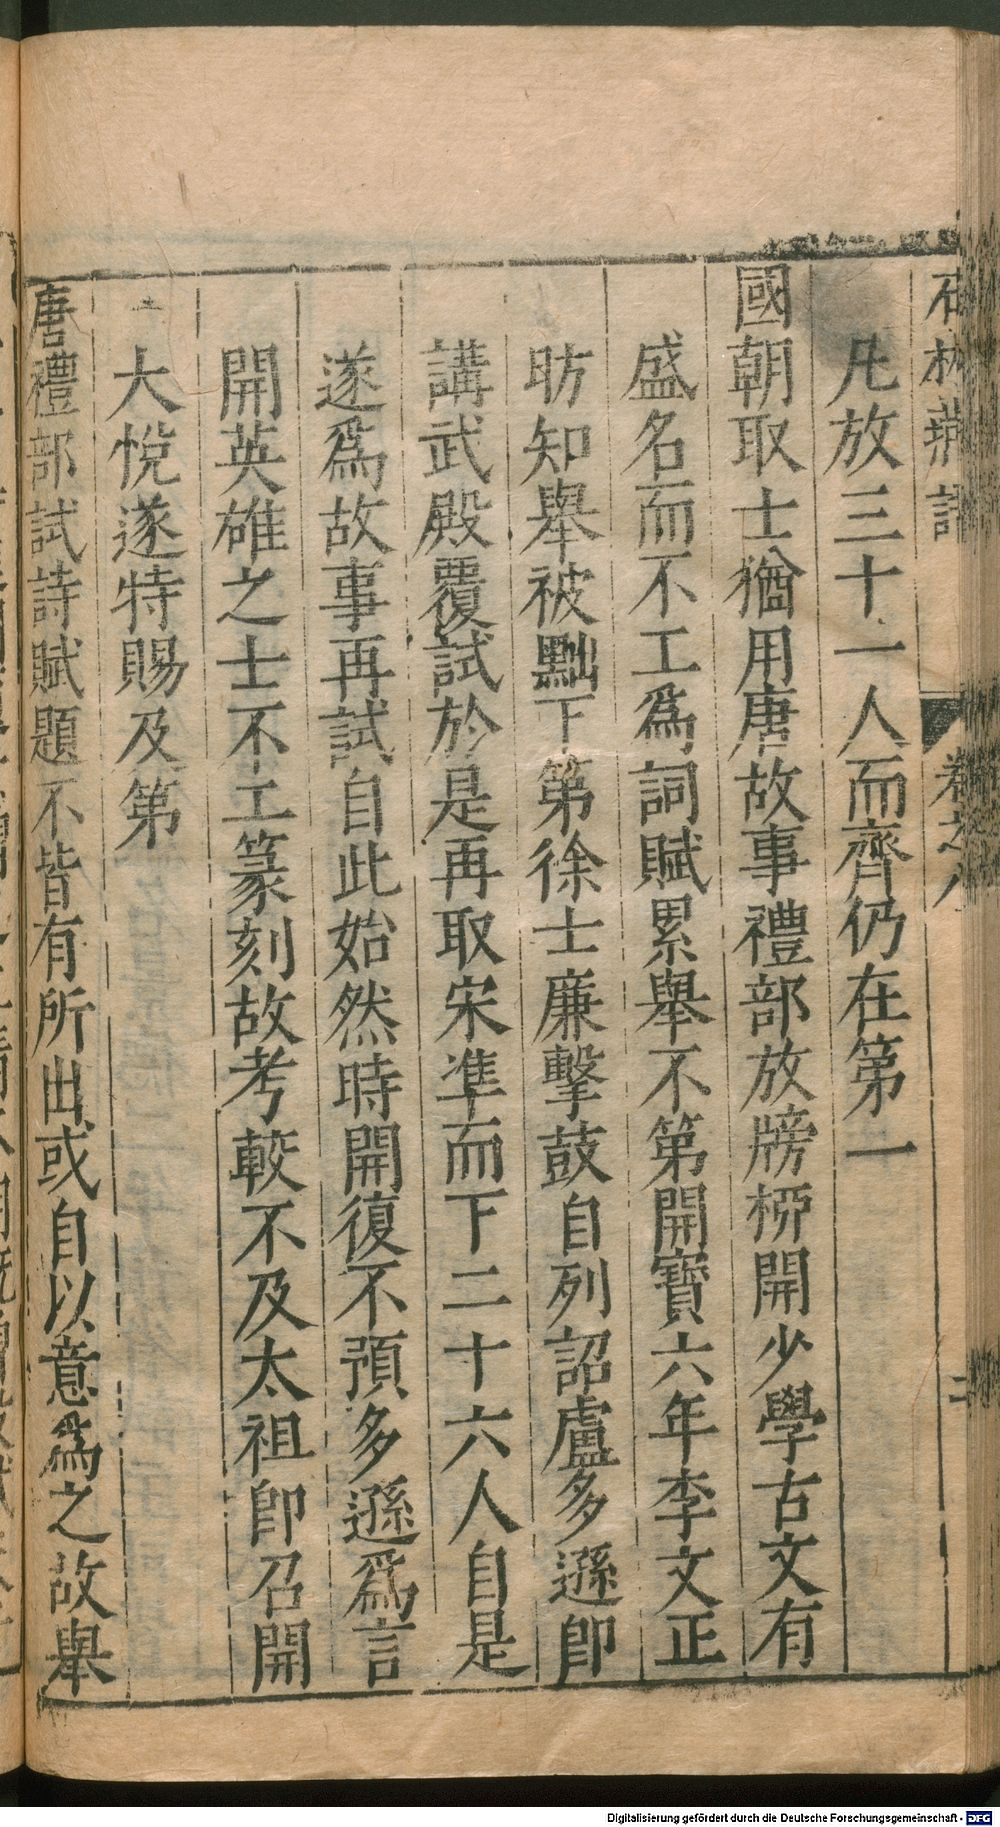 石林燕語 卷之八 二
凡放三十一人而齊仍在第一
國朝取士猶用唐故事禮部放牓桺開少學古文有
盛名而不工爲詞賦累舉不第開寶六年李文正
昉知舉被黜下第徐士廉擊鼓自列詔盧多遜即
講武殿覆試於是再取宋準而下二十六人自是
遂爲故事再試自此始然時開復不預多遜爲言
開英雄之士不工篆刻故考較不及太祖即召開
大悅遂特賜及第
唐禮部試詩賦題不皆有所出或自以意爲之故舉
Digitalisierung gefördert durch die Deutsche Forschungsgemeinschaft - DFG